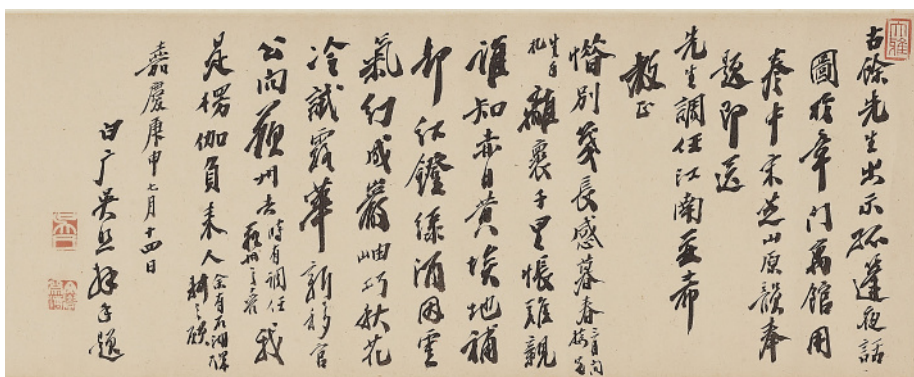 大雅
古餘先生出示孤蓬夜話
圖於章門寓館用
卷中宋芝山原韻奉
題即送
先生調任江南並希
教正
惜別箋長感暮春三月間接先
生手札離褱千里悵難親
誰知赤日黃埃地補
却紅鐙綠酒因雲
氣幻成巖岫巧秋花
冷試露華新移官
公向蘇州去時有調任蘇州之眷我
是楞伽負米人余有石湖課耕之願
嘉慶庚申七月十四日
白广吳照拜手題